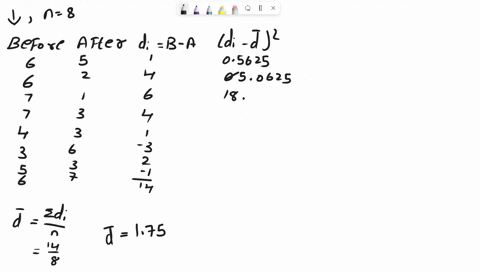 ↓, n=8
Before After di =B-A (di - d̄)²
6 5 1 0.5625
6 2 4 5.0625
7 1 6 18.
7 3 4
4 3 1
3 6 -3
5 3 2
6 7 -1
14
d̄ = Σdi/n
= 14/8
d̄ = 1.75